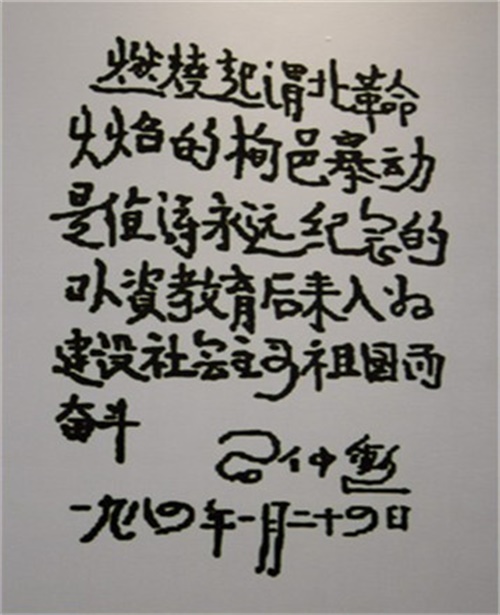 燃烧起渭北革命
火焰的栒邑暴动
是值得永远纪念的
以资教育后来人为
建设社会主义祖国而
奋斗
习仲勋
一九八四年一月二十四日